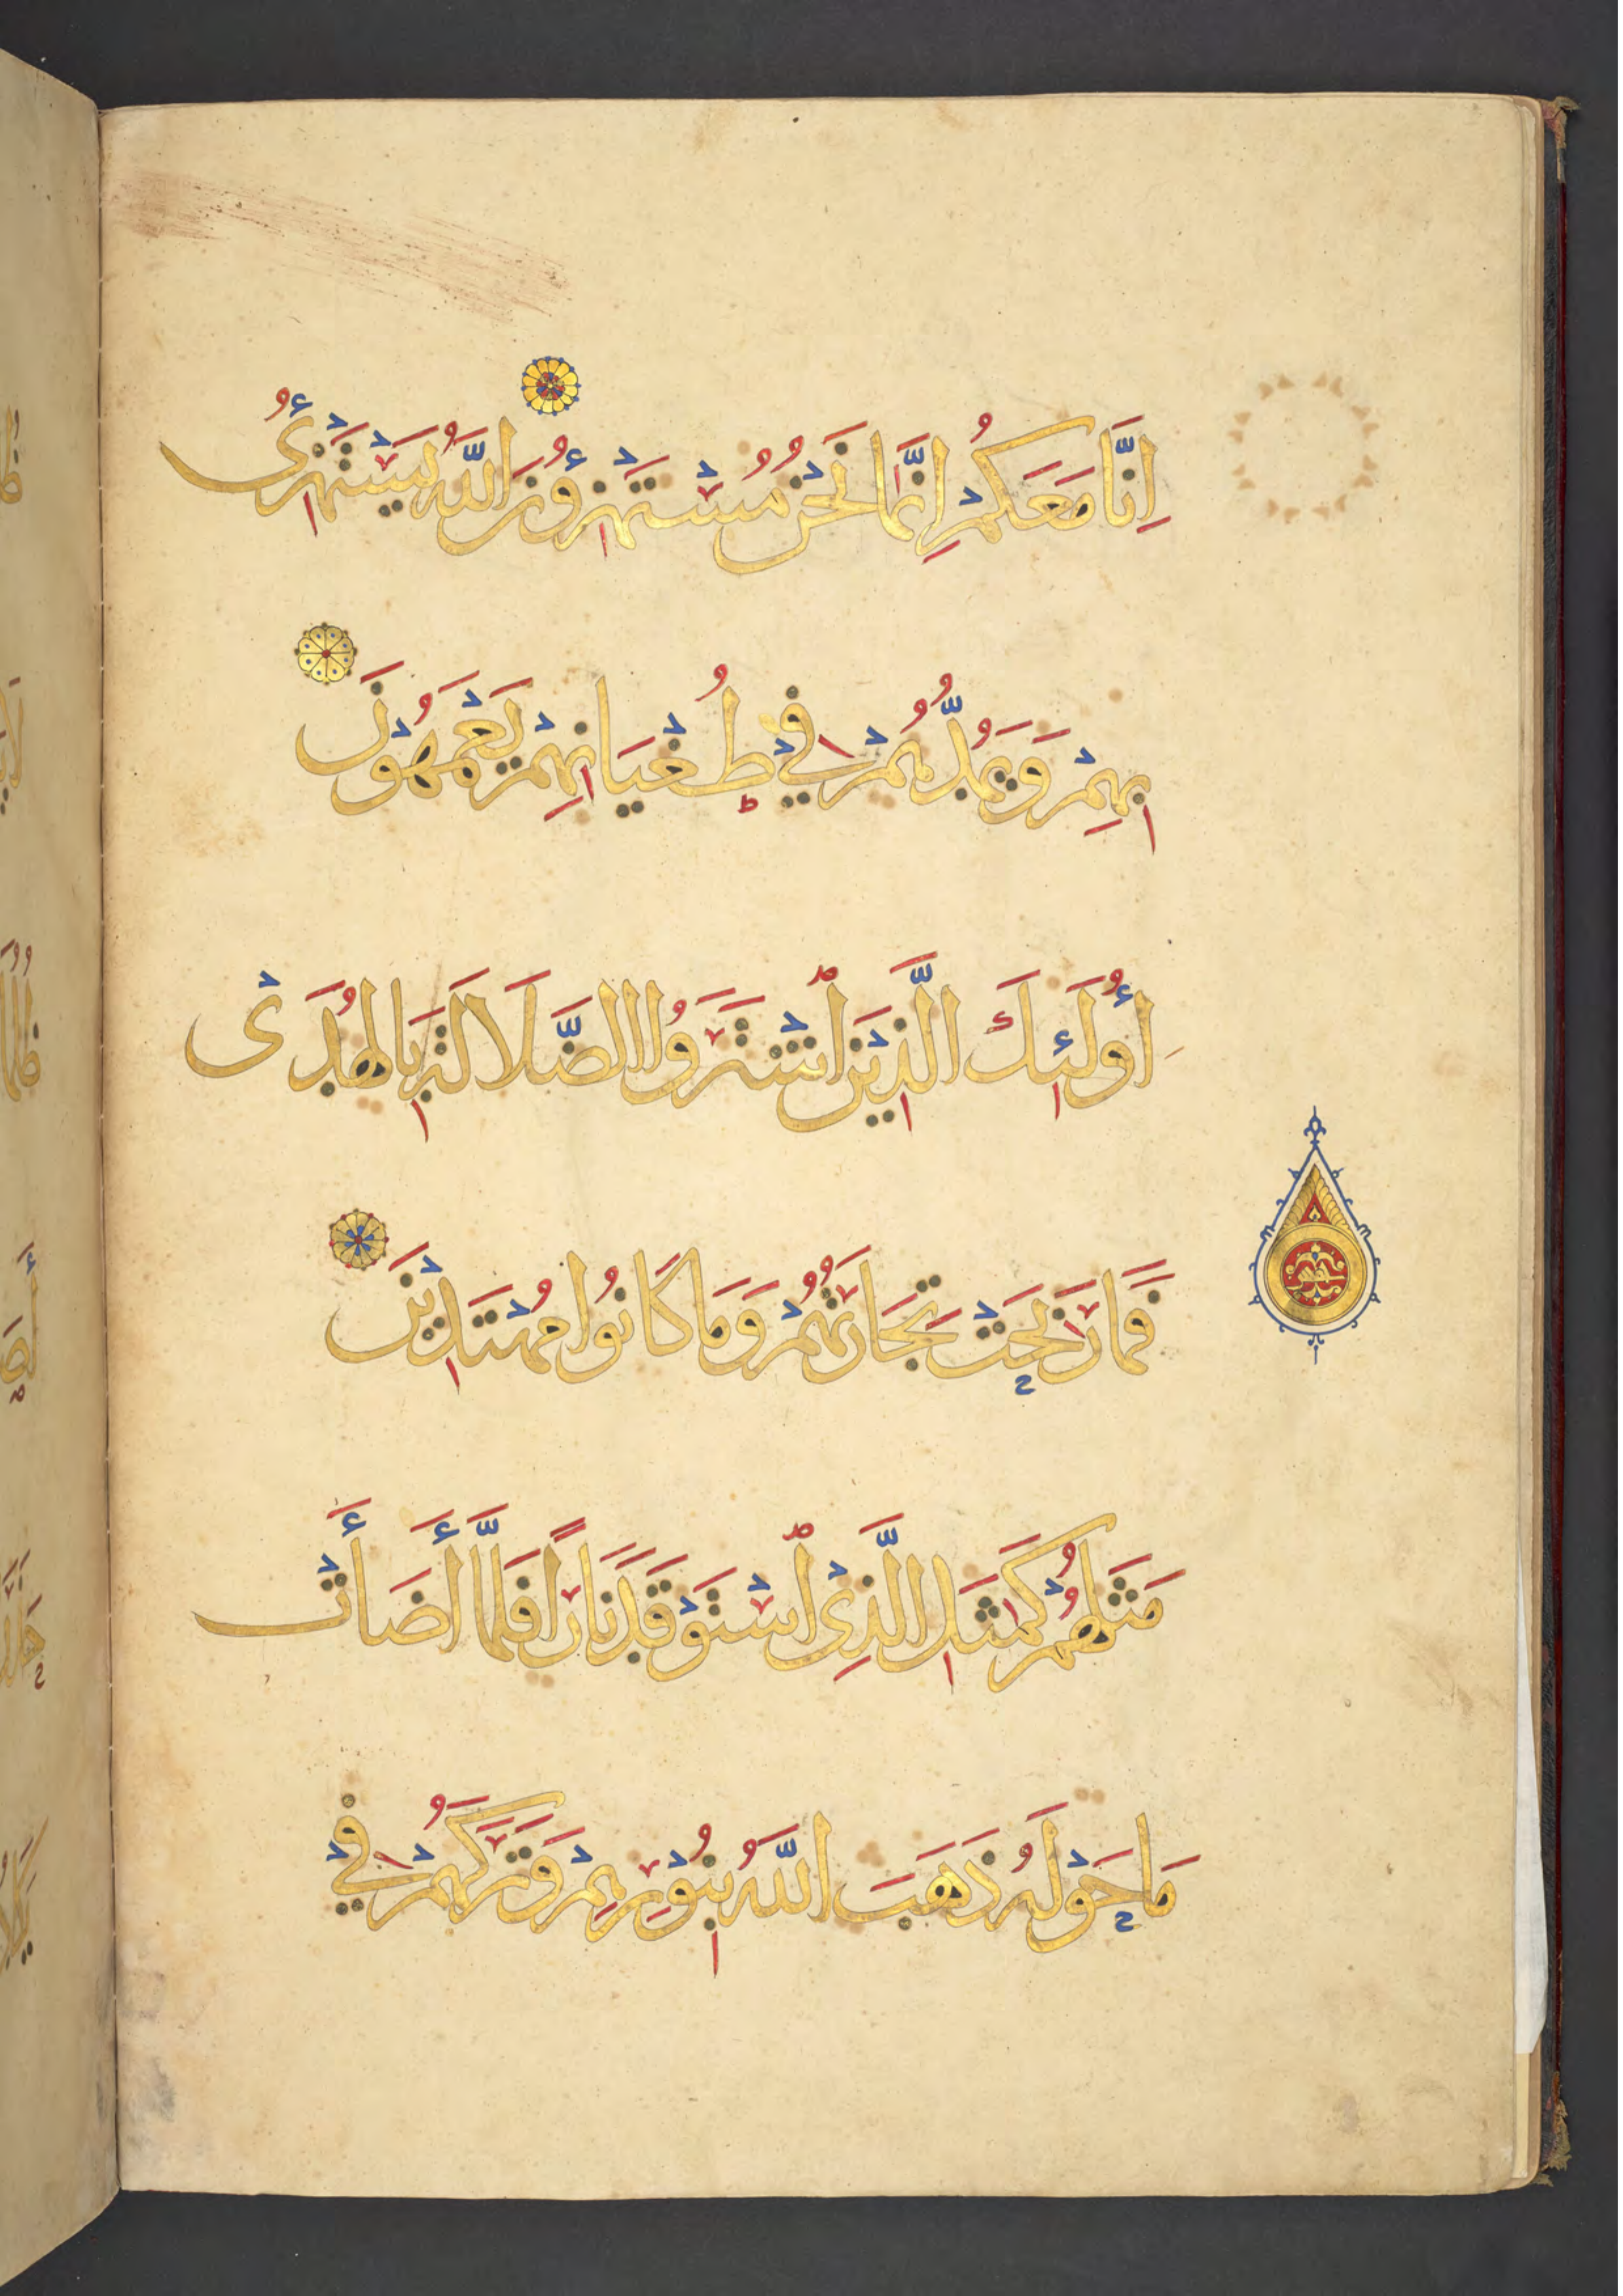 اِنَّا مَعَكُمْ اِنَّمَا نَحْنُ مُسْتَهْزِؤُنَ اللَّهُ يَسْتَهْزِئُ
بِهِمْ وَيَمُدُّهُمْ فِي طُغْيَانِهِمْ يَعْمَهُوْنَ
أُولَئِكَ الَّذِيْنَ اشْتَرَوُا الضَّلَالَةَ بِالْهُدَىْ
فَمَا رَبِحَتْ تِجَارَتُهُمْ وَمَا كَانُوا مُهْتَدِيْنَ
مَثَلُهُمْ كَمَثَلِ الَّذِيْ اسْتَوْقَدَ نَارًا فَلَمَّا أَضَأَتْ
مَا حَوْلَهُ ذَهَبَ اللَّهُ بِنُوْرِهِمْ وَتَرَكَهُمْ فِيْ